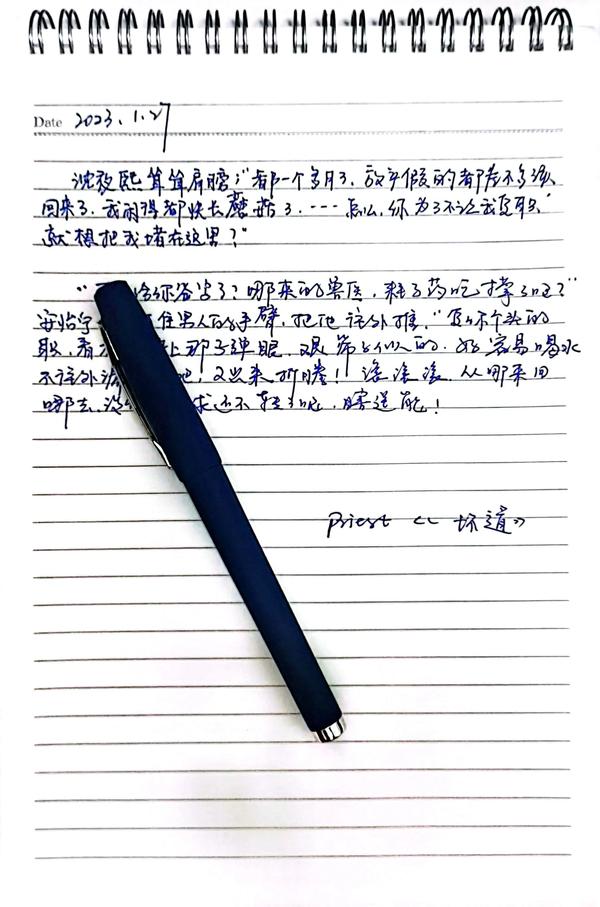 Date 2023.1.27
沈夜熙耸耸肩膀:"都一个多月了,放年假的都差不多该
回来了,我闲得都快长蘑菇了,----怎么,你为了不让我复职,
就想把我堵在这里?"
"给你治步了?哪来的兽医,耗子药吃撑了吧?"
安怡宁 住男人的手臂,把他往外推,"复你个头的
职,看 上那子弹眼,跟筛子似的,好容易喝水
不往外 吧,又出来折腾!滚滚滚,从哪来回
哪去, 球还不转了呢,瞎逞能!
Priest《坏道》